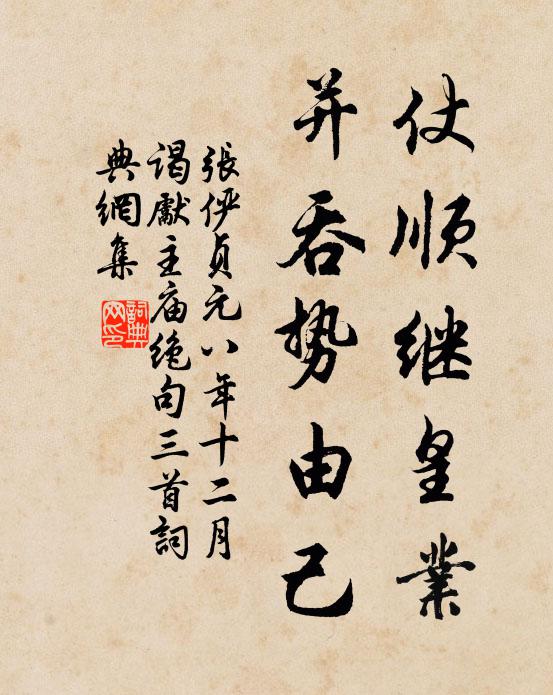 仗顺继皇業
并吞势由己
張俨貞元八年十二月
谒獻主庙绝句三首詞
典網集
詞典网印